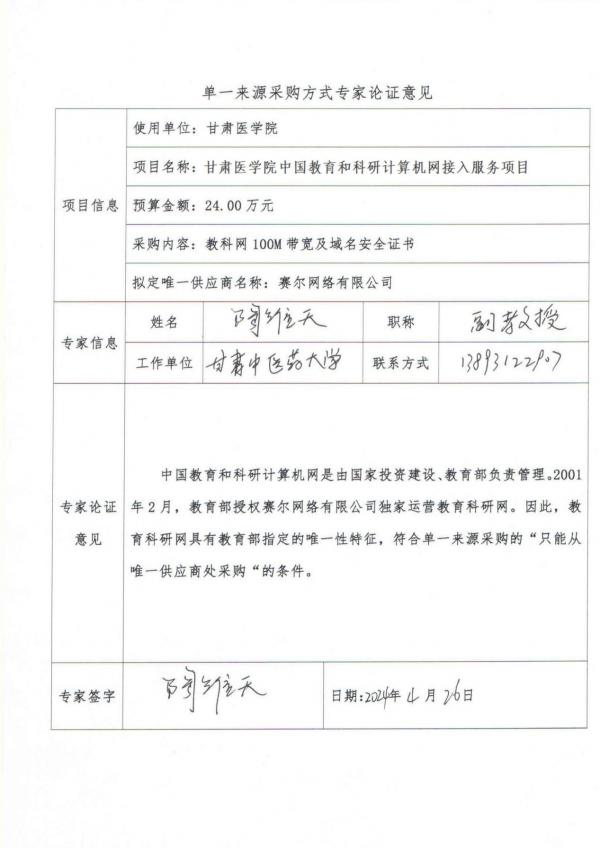 单一来源采购方式专家论证意见
项目信息
使用单位：甘肃医学院
项目名称：甘肃医学院中国教育和科研计算机网接入服务项目
预算金额：24.00万元
采购内容：教科网100M带宽及域名安全证书
拟定唯一供应商名称：赛尔网络有限公司
专家信息
姓名 陶维天 职称 副教授
工作单位 甘肃中医药大学 联系方式 13893122907
专家论证
意见
中国教育和科研计算机网是由国家投资建设、教育部负责管理。2001
年2月，教育部授权赛尔网络有限公司独家运营教育科研网。因此，教
育科研网具有教育部指定的唯一性特征，符合单一来源采购的“只能从
唯一供应商处采购“的条件。
专家签字 陶维天 日期：2024年4月26日